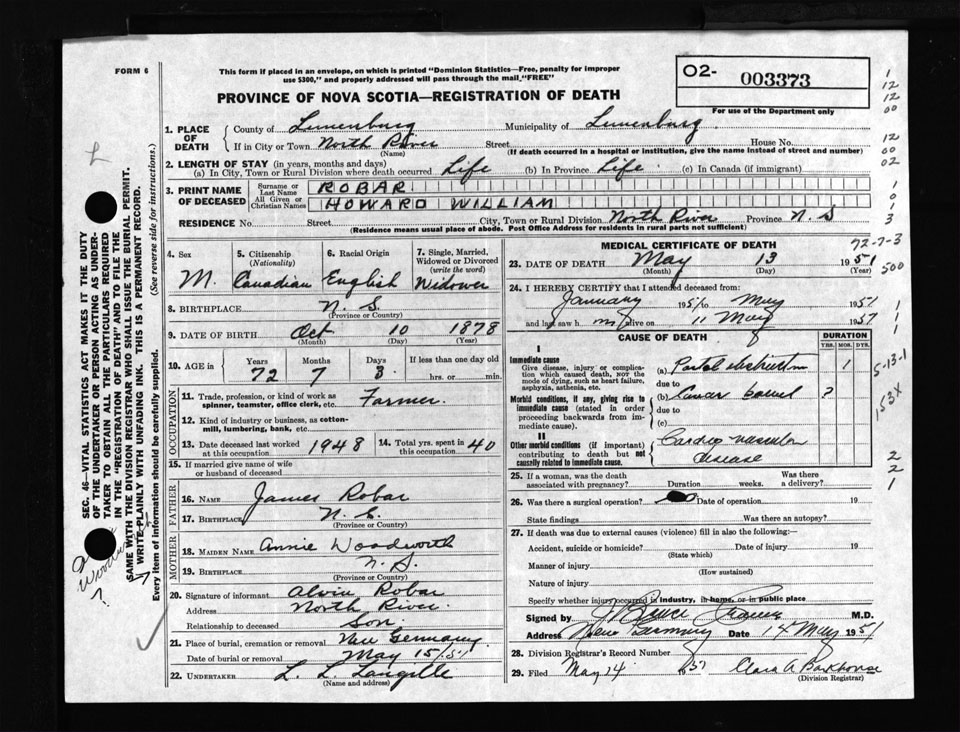 FORM 6
This form if placed in an envelope, on which is printed "Dominion Statistics—Free, penalty for improper
use $300," and properly addressed will pass through the mail "FREE"
O2- 003373
For use of the Department only
PROVINCE OF NOVA SCOTIA—REGISTRATION OF DEATH
1. PLACE OF DEATH
County of Lunenburg Municipality of Lunenburg
If in City or Town North River Street House No.
(Name) (If death occurred in a hospital or institution, give the name instead of street and number)
2. LENGTH OF STAY (in years, months and days)
(a) In City, Town or Rural Division where death occurred Life (b) In Province Life (c) In Canada (if immigrant)
3. PRINT NAME OF DECEASED
Surname or Last Name ROBAR
All Given or Christian Names HOWARD WILLIAM
RESIDENCE No. Street City, Town or Rural Division North River Province N.S
(Residence means usual place of abode. Post Office Address for residents in rural parts not sufficient)
4. Sex M.
5. Citizenship (Nationality) Canadian
6. Racial Origin English
7. Single, Married, Widowed or Divorced (write the word) Widower
8. BIRTHPLACE N.S.
(Province or Country)
9. DATE OF BIRTH Oct 10 1878
(Month) (Day) (Year)
10. AGE in Years Months Days If less than one day old
72 7 3 hrs. or min.
OCCUPATION
11. Trade, profession, or kind of work as
spinner, teamster, office clerk, etc. Farmer.
12. Kind of industry or business, as cotton-
mill, lumbering, bank, etc.
13. Date deceased last worked at this occupation 1948
14. Total yrs. spent in this occupation 40
15. If married give name of wife
or husband of deceased
FATHER
16. NAME James Robar
17. BIRTHPLACE N.S.
(Province or Country)
MOTHER
18. MAIDEN NAME Annie Woodworth
19. BIRTHPLACE N.S.
(Province or Country)
20. Signature of informant Alvin Robar
Address North River.
Relationship to deceased Son.
21. Place of burial, cremation or removal New Germany
Date of burial or removal May 15/51
22. UNDERTAKER L. L. Langille
(Name and address)
MEDICAL CERTIFICATE OF DEATH
72-7-3
23. DATE OF DEATH May 13 1951
(Month) (Day) (Year)
24. I HEREBY CERTIFY that I attended deceased from:
January 1951 to May 1951
and last saw h m alive on 11 May 1951
CAUSE OF DEATH
DURATION
YRS. MOS. DYS.
I
Immediate cause
Give disease, injury or complication which caused death, NOT the mode of dying, such as heart failure, asphyxia, asthenia, etc.
(a) Portal obstruction 1
due to
Morbid conditions, if any, giving rise to immediate cause (stated in order proceeding backwards from immediate cause).
(b) Cancer bowel ?
due to
(c)
II
Other morbid conditions (if important) contributing to death but not causally related to immediate cause.
Cardio vascular
disease
25. If a woman, was the death associated with pregnancy? Duration weeks. Was there a delivery?
26. Was there a surgical operation? Date of operation 19
State findings Was there an autopsy?
27. If death was due to external causes (violence) fill in also the following:—
Accident, suicide or homicide? Date of injury 19
(State which)
Manner of injury
(How sustained)
Nature of injury
Specify whether injury occurred in industry, in home, or in public place
Signed by M.D.
Address New Germany Date 14 May 1951
28. Division Registrar's Record Number
29. Filed May 14 1951 Clara A Barkhouse
(Division Registrar)
SEC. 46—VITAL STATISTICS ACT MAKES IT THE DUTY
OF THE UNDERTAKER OR PERSON ACTING AS UNDER-
TAKER TO OBTAIN ALL THE PARTICULARS REQUIRED
IN THE "REGISTRATION OF DEATH" AND TO FILE THE
SAME WITH THE DIVISION REGISTRAR WHO SHALL ISSUE THE BURIAL PERMIT.
WRITE PLAINLY WITH UNFADING INK. THIS IS A PERMANENT RECORD.
Every item of information should be carefully supplied. (See reverse side for instructions.)
L
?
1
12
12
00
12
00
02
1
0
1
3
500
1
1
1
5-13-1
153X
2
2
1